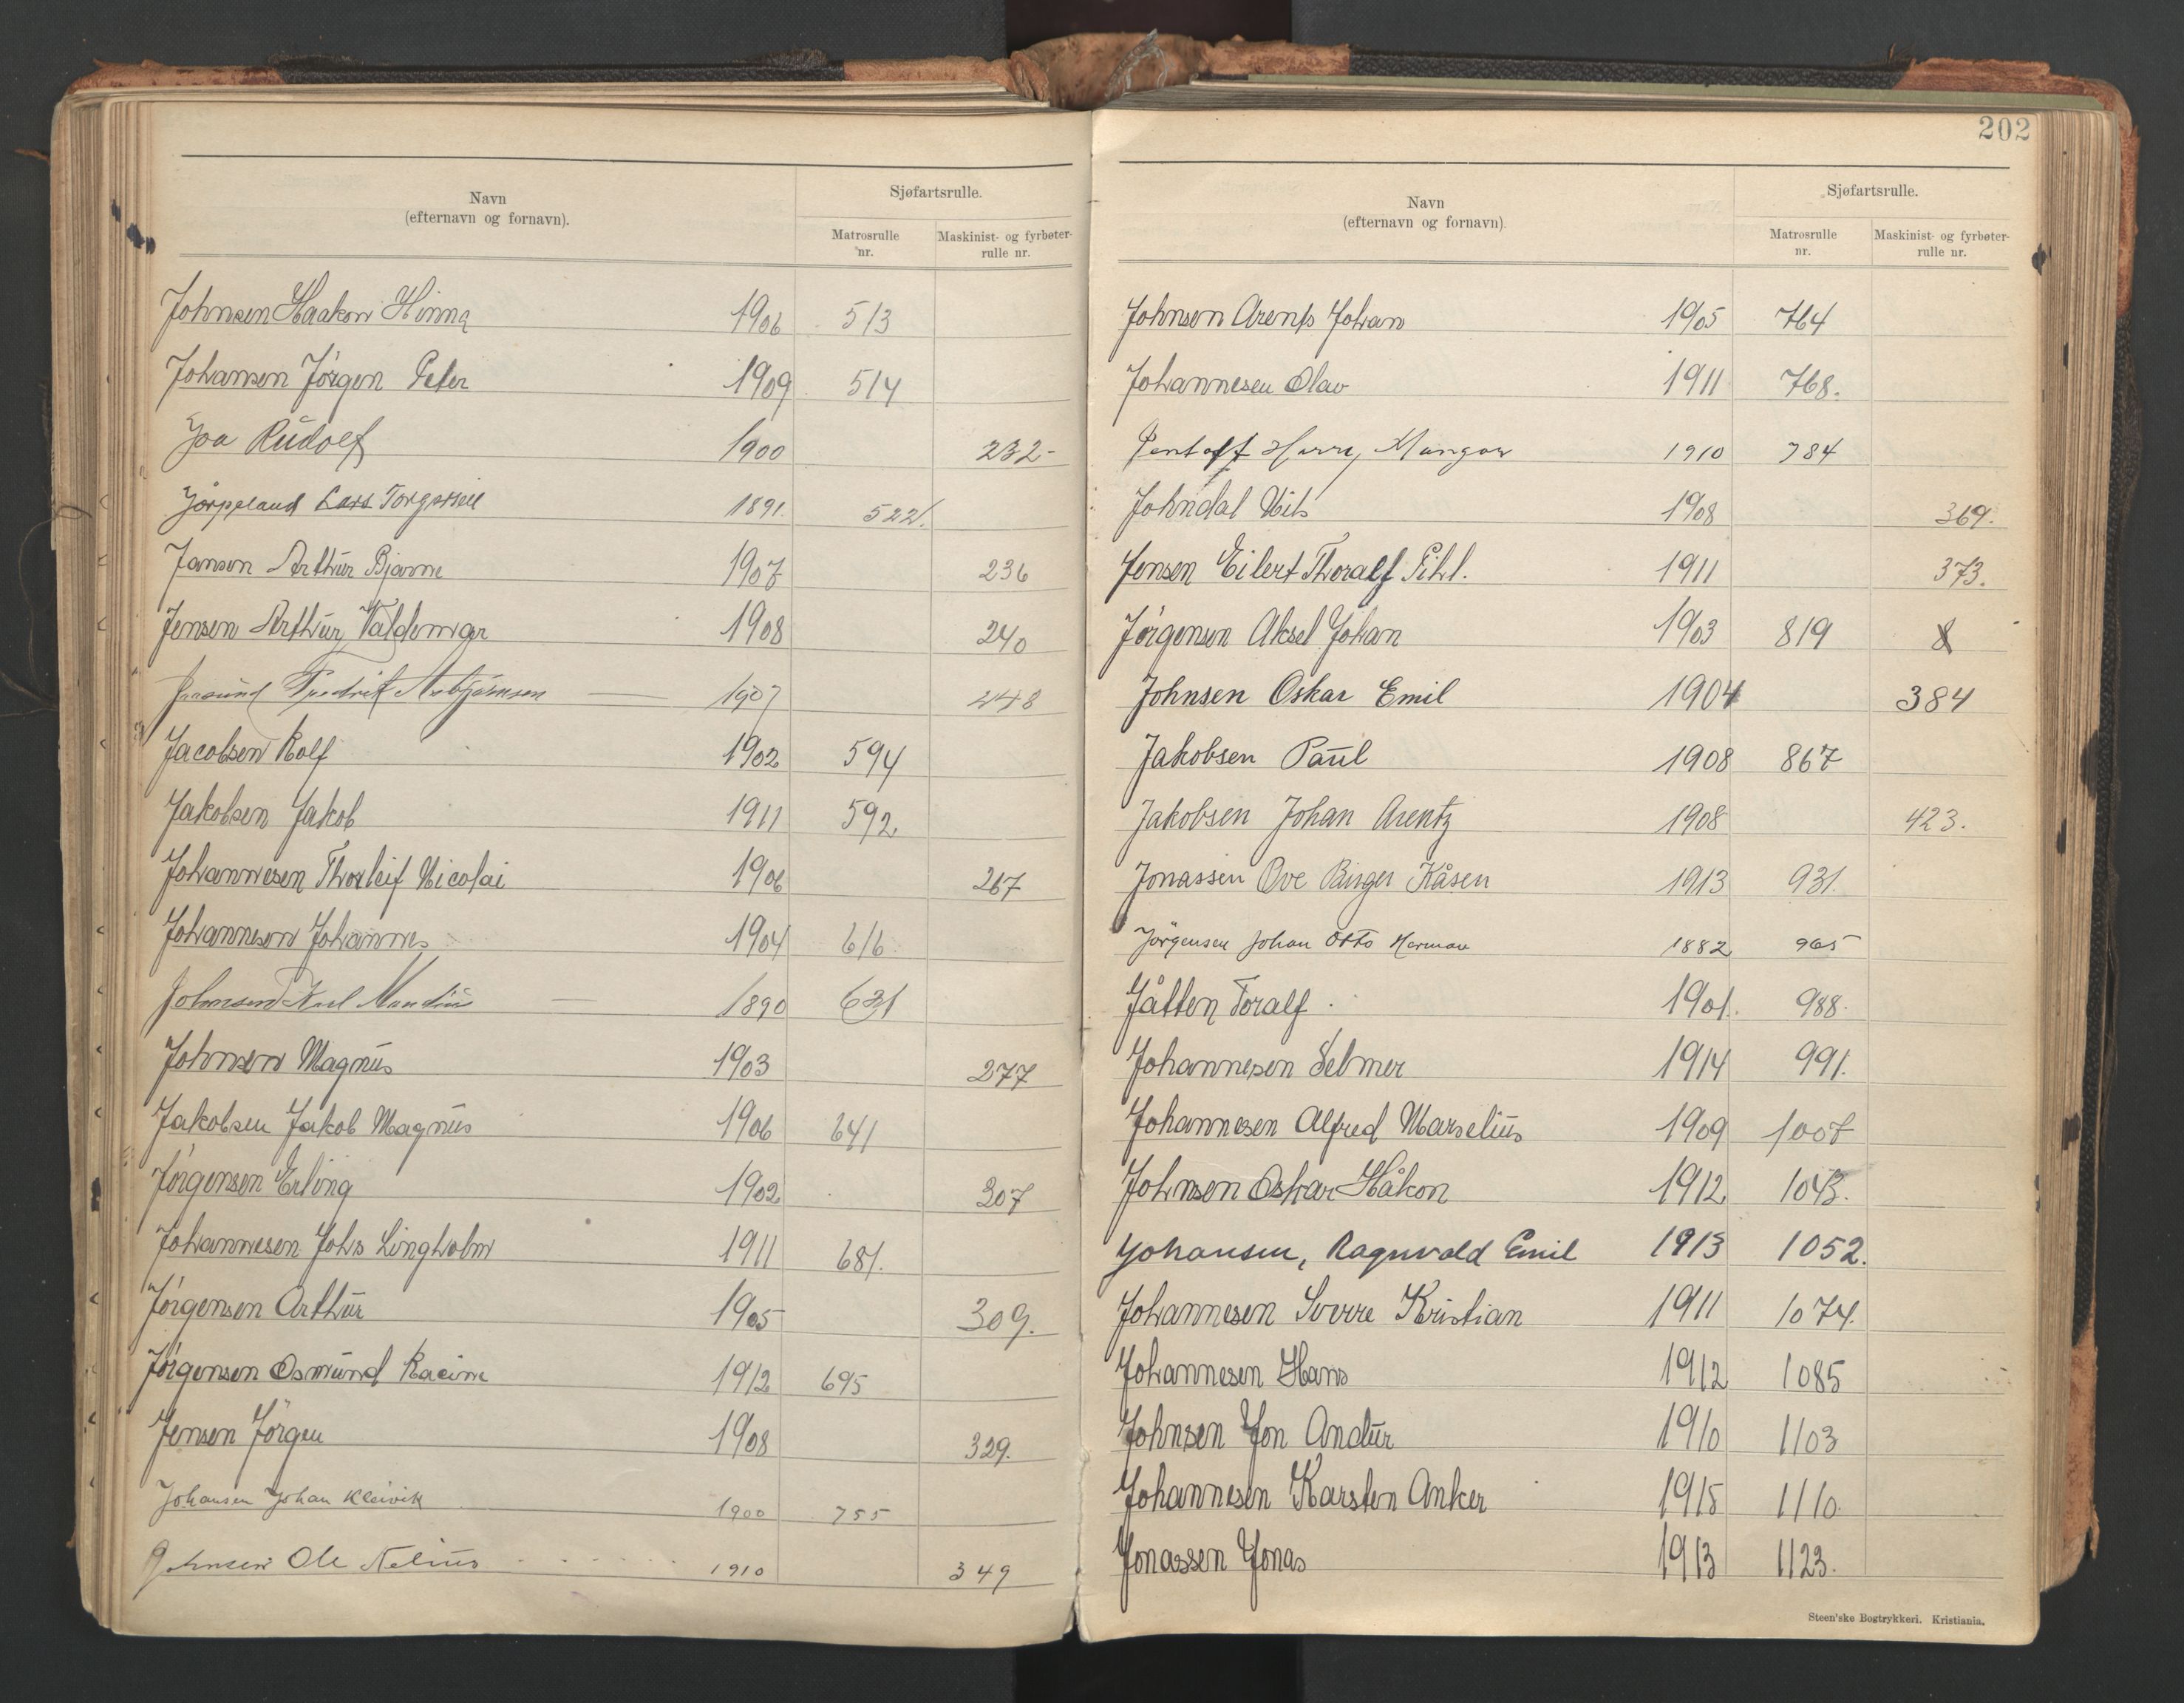 Navn
(efternavn og fornavn).
Sjøfartsrulle.
Matrosrulle nr.
Maskinist- og fyrbøter-rulle nr.
Johnsen Haakon Hinna 1906 513
Johansen Jörgen Peter 1909 514
Joa Rudolf 1900 232-
Jørpeland Lars Torgersen 1891 522.
Jansen Arthur Bjarne 1907 236
Jensen Arthur Valdemar 1908 240
Fredrik Asbjørnsen 1907 248
Jacobsen Rolf 1902 594
Jakobsen Jakob 1911 592
Johannesen Thorleif Nicolai 1906 267
Johannesen Johannes 1904 616
Johnsen Karl 1890 631
Johnsen Magnus 1903 277
Jakobsen Jakob Magnus 1906 641
Jörgensen Erling 1902 307
Johannesen Johs Lingholm 1911 681.
Jörgensen Arthur 1905 309.
Jörgensen Osmund Racine 1912 695
Jensen Jörgen 1908 329.
Johansen Johan Kleivik 1900 755
Johnsen Ole Nelius 1910 349
202
Navn
(efternavn og fornavn).
Sjøfartsrulle.
Matrosrulle nr.
Maskinist- og fyrbøter-rulle nr.
Johnsen Arents Johan 1905 764
Johannesen Olav 1911 768.
Jentoft Harry Mangor 1910 784
Johndal Nils 1908 369.
Jensen Eilert Thoralf Pihl. 1911 373.
Jörgensen Aksel Johan 1903 819 8
Johnsen Oskar Emil 1904 384
Jakobsen Paul 1908 867
Jakobsen Johan Arentz 1908 423.
Jonassen Ove Birger Kåsen 1913 931.
Jörgensen Johan Otto Herman 1882 965
Jåtten Toralf 1901. 988.
Johannesen Selmer 1914 991.
Johannesen Alfred Marselius 1909 1007
Johnsen Oskar Håkon 1912 1043.
Johansen, Ragnvald Emil 1913 1052.
Johannesen Sverre Kristian 1911 1074.
Johannesen Hans 1912 1085
Johnsen Jon Andur 1910 1103
Johannesen Karsten Anker 1915 1110.
Jonassen Jonas 1913 1123.
Steen'ske Bogtrykkeri. Kristiania.